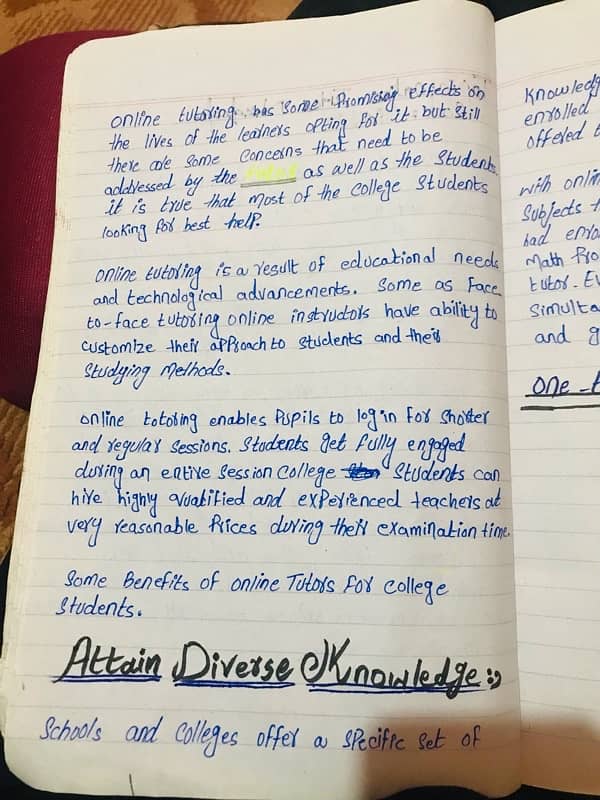 online tutoring has some promising effects on
the lives of the learners opting for it but still
there are some concerns that need to be
addressed by the as well as the students.
it is true that most of the college students
looking for best help.
online tutoring is a result of educational needs
and technological advancements. Some as face-
to-face tutoring online instructors have ability to
customize their approach to students and their
studying methods.
online totoring enables pupils to log in for shorter
and regular sessions. Students get fully engaged
during an entire session college students can
hire highly qualified and experienced teachers at
very reasonable prices during their examination time.
Some Benefits of online Tutors for college
students.
Attain Diverse Knowledge:
Schools and colleges offer a specific set of
Knowledg
enrolled
offered t
with onlin
Subjects t
had enro
Math Pro
tutor. Ev
Simulta
and g
one-t